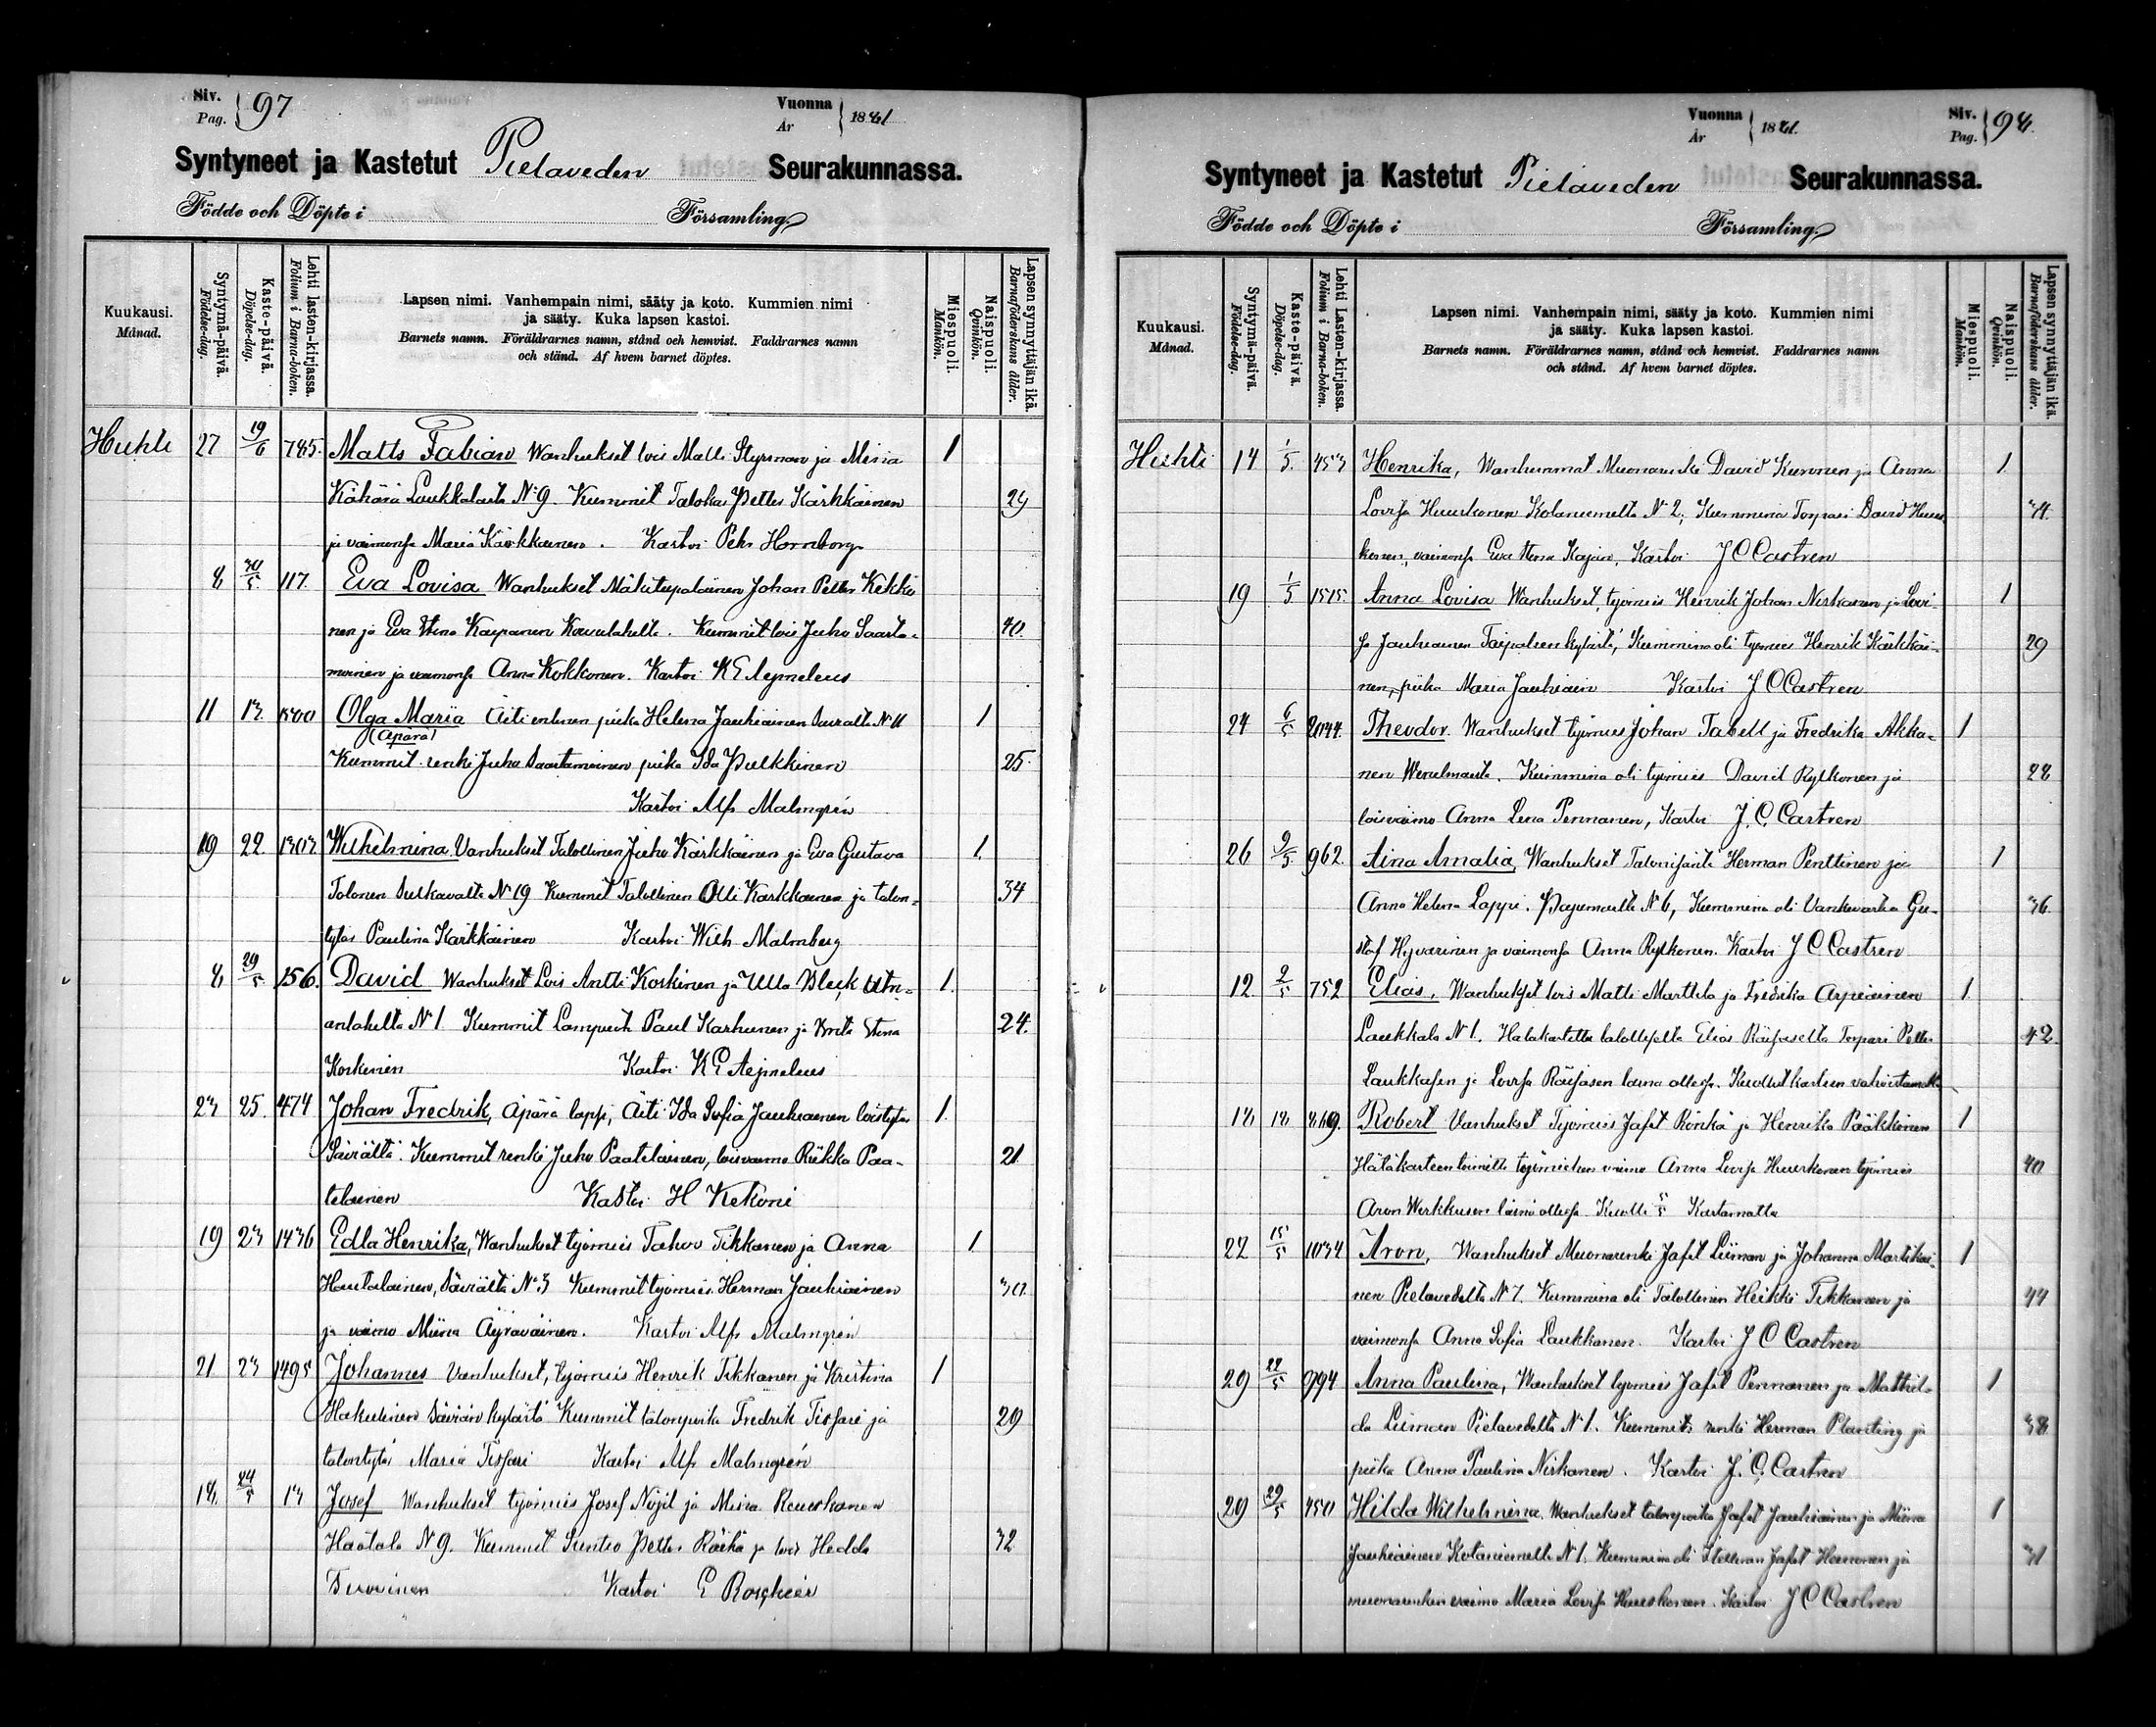 Siv.
Pag. } 97
Vuonna
År } 1881
Syntyneet ja Kastetut Pielaveden Seurakunnassa.
Födde och Döpte i Församling.
Kuukausi.
Månad.
Syntymä-päivä.
Födelse-dag.
Kaste-päivä.
Döpelse-dag.
Lehti lasten-kirjassa.
Folium i Barna-boken.
Lapsen nimi. Vanhempain nimi, sääty ja koto. Kummien nimi
ja sääty. Kuka lapsen kastoi.
Barnets namn. Föräldrarnes namn, stånd och hemvist. Faddrarnes namn
och stånd. Af hvem barnet döptes.
Miespuoli.
Mankön.
Naispuoli.
Qvinkön.
Lapsen synnyttäjän ikä.
Barnaföderskans ålder.
Huhti 27 19/6 785. Matts Fabian Wanhukset lois Matti Styrman ja Miina 1
Kähärä Laukkalasta N:9 Kummit Petter Kärkkäinen 29
ja vaimonsa Maria Kärkkäinen. Kastoi Pehr Hornborg
8 30/5 117. Eva Lovisa Wanhukset Mäkitupalainen Johan Petter Kekko
nen ja Eva Stina Kaupanen. Kummit lois Juho Saasta- 40.
moinen ja vaimonsa Anna Kokkonen. Kastoi K E Aejmeleus
11 13. 1500 Olga Maria Äiti piika Helena Jauhiainen N:11 1
(äpärä)
Kummit renki Juho Saastamoinen piika Ida Pulkkinen 25.
Kastoi Alfr Malmgrén
19 22 1303 Wilhelmina Vanhukset Talollinen Juho Kärkkäinen ja Eva Gustava 1.
Tolonen Sulkavalta N:19 Kummit Talollinen Olli Kärkkäinen ja talon- 34
tytär Paulina Kärkkäinen Kastoi Wilh Malmberg
8 29/5 156. David Wanhukset Lois Antti Koskinen ja Ulla Bleck 1.
N:1 Kummit Paul Karhunen ja Brita Stina 24.
Koskinen Kastoi K E Aejmeleus
23 25. 474 Johan Fredrik, Äpärä lapsi, Äiti Ida Sofia Jauhiainen loistytär 1.
Säviältä. Kummit renki Juho Paatelainen, loisvaimo Riikka Paa- 21
telainen Kastoi H Kekoni
19 23 1436 Edla Henrika, Wanhukset työmies Tahvo Tikkanen ja Anna 1
Hautalainen, Säviältä N:3 Kummit työmies Herman Jauhiainen 30.
ja vaimo Miina Äyräväinen. Kastoi Alfr Malmgrén
21 23 1495 Johannes Vanhukset, työmies Henrik Tikkanen ja Kristina 1
Hakulinen Säviän kylästä Kummit talonpoika Fredrik Tissari ja 29
talontytär Maria Tissari Kastoi Alfr Malmgrén
18. 24/5 13 Josef Wanhukset työmies Josef Nöjd ja Miina Ruuskanen
Haatala N 9. Kummit Suntio Petter Räikä ja lois Hedda 32
Tuovinen Kastoi E Roschier
Vuonna
År } 1881.
Siv.
Pag. } 98.
Syntyneet ja Kastetut Pielaveden Seurakunnassa.
Födde och Döpte i Församling.
Kuukausi.
Månad.
Syntymä-päivä.
Födelse-dag.
Kaste-päivä.
Döpelse-dag.
Lehti Lasten-kirjassa.
Folium i Barna-boken.
Lapsen nimi. Vanhempain nimi, sääty ja koto. Kummien nimi
ja sääty. Kuka lapsen kastoi.
Barnets namn. Föräldrarnes namn, stånd och hemvist. Faddrarnes namn
och stånd. Af hvem barnet döptes.
Miespuoli.
Mankön.
Naispuoli.
Qvinkön.
Lapsen synnyttäjän ikä.
Barnaföderskans ålder.
Huhti 14 1/5. 453 Henrika, Wanhemmat Muonarenki David Kumnen ja Anna 1.
Lovisa Huuskonen Kotaniemeltä N:2; Kummina Torpari David Huus 34.
konen, vaimonsa Eva Stina Kajan, Kastoi J C Castren
19 1/5 1515. Anna Lovisa Wanhukset, työmies Henrik Johan Niskanen ja Lovi- 1
sa Jauhiainen Taipaleen kylästä, Kummina oli työmies Henrik Kärkkäi- 29
nen, piika Maria Jauhiain Kastoi J C Castren
24 6/5 2044. Theodor. Wanhukset työmies Johan Tabell ja Fredrika Akka- 1
nen. Kummina oli työmies David Rytkönen ja 28
loisvaimo Anna Lena Pennanen, Kastoi J. C. Castren
26 9/5 962. Aina Amalia, Wanhukset Talonisäntä Herman Penttinen ja 1
Anna Helena Lappi. Pajumäeltä N:6, Kummina oli Vankivartia Gu- 36.
staf Hyvärinen ja vaimonsa Anna Rytkönen. Kastoi J C Castren
12 2/5 752 Elias, Wanhukset lois Matti Marttila ja Fredrika Arpiainen 1.
Laukkala N:1. Hätäkastettu talolliselta Elias Räisäseltä Torpari Petter 42.
Laukkasen ja Lovisa Räisäsen läsnä ollessa. Kuollut kasteen vahvistamatta
18 18 869. Robert Vanhukset Työmies Jafet Rönkä ja Henrika Pääkkönen 1
Hätäkasteen toimitti työmiehen vaimo Anna Lovisa Huuskonen työmies 40
Aron Werkkusen läsnä ollessa. Kuoli 5/5 Kastamatta
22 15/5 1034 Aron, Wanhukset Muonarenki Jafet Liiman ja Johanna Martikai- 1
nen Pielavedeltä N:7. Kummina oli Talollinen Heikki Tikkanen ja 44
vaimonsa Anna Sofia Laukkanen. Kastoi J C Castren
29 22/5 994 Anna Paulina, Wanhukset työmies Jafet Pennanen ja Mathil- 1
da Liiman Pielavedeltä N:1. Kummit: renki Herman Planting ja 38
piika Anna Paulina Niskanen. Kastoi J. C. Castren
29 29/5 450 Hilda Wilhelmina. Wanhukset talonpoika Jafet Jauhiainen ja Miina 1
Jauhiainen Kotaniemeltä N:1. Kummina oli Jafet Hamonen ja 31
muonarenkin vaimo Maria Lovisa Huuskonen. Kastoi J C Castren